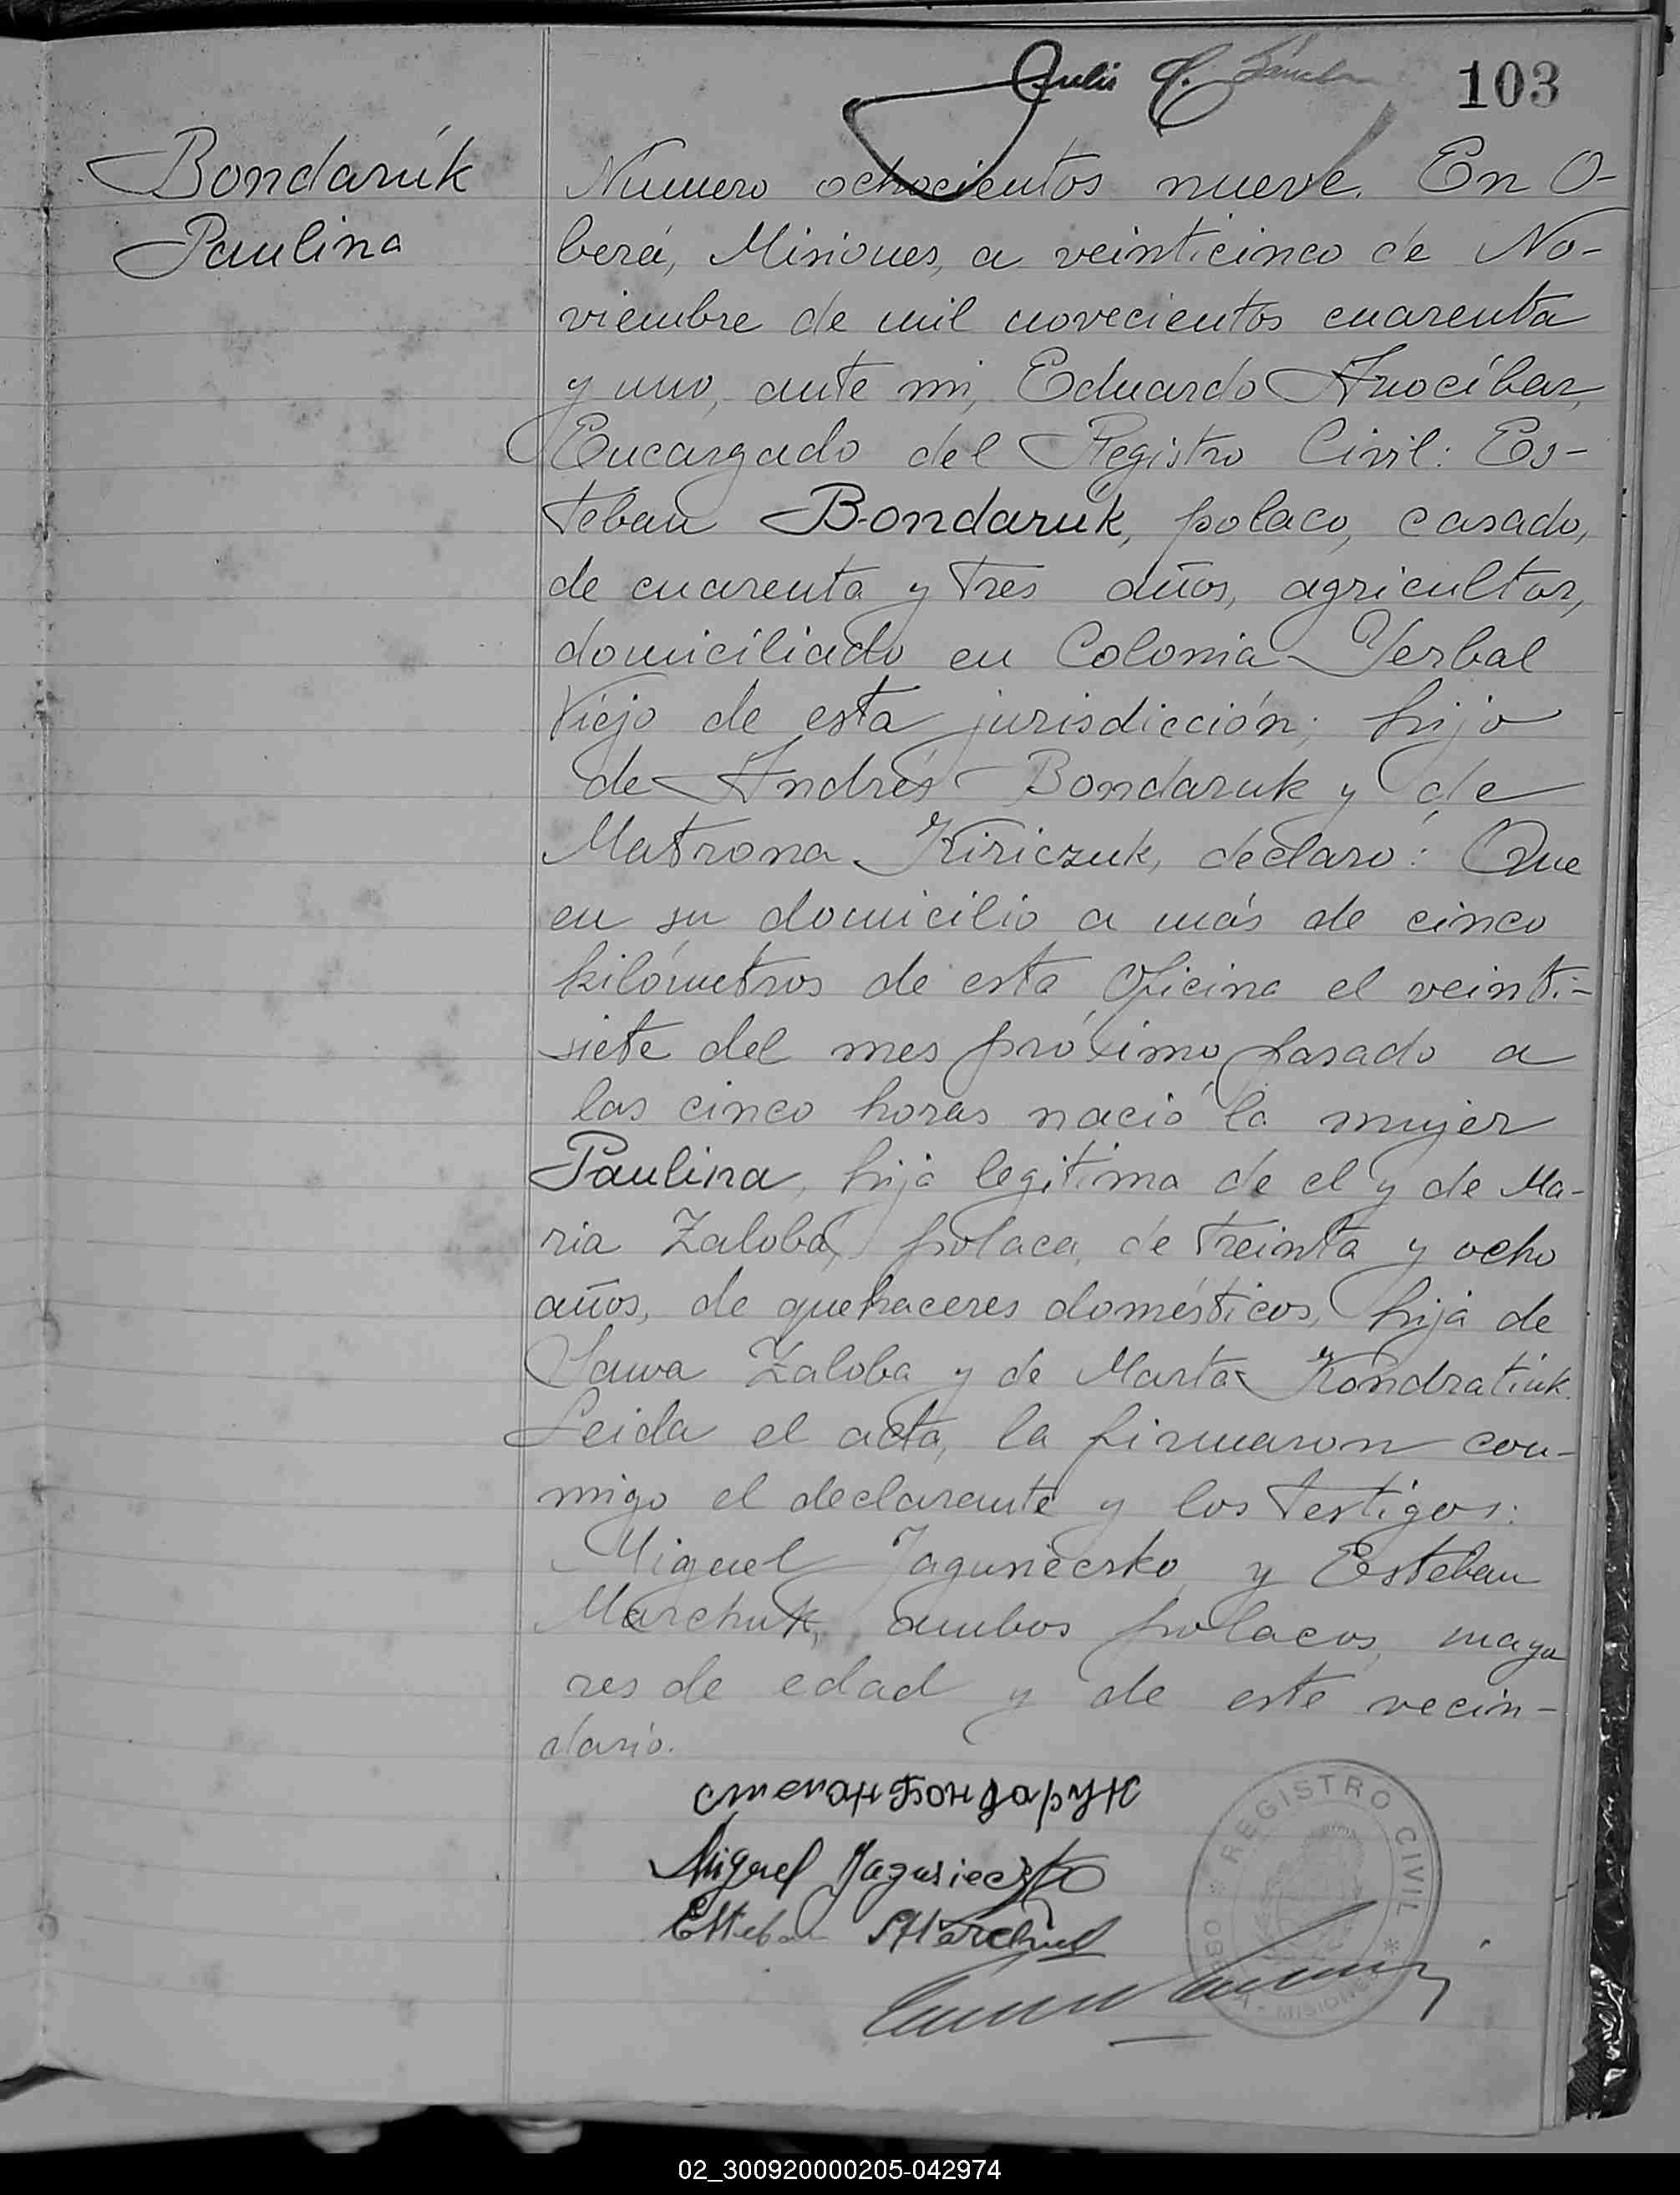 Julio A.
103
Bondaruk
Paulina
Número ochocientos nueve. En O-
berá, Misiones, a veinticinco de No-
viembre de mil novecientos cuarenta
y uno, ante mi, Eduardo Arocíbar,
Encargado del Registro Civil: Es-
teban Bondaruk, polaco, casado,
de cuarenta y tres años, agricultor,
domiciliado en Colonia Yerbal
Viejo de esta jurisdicción; hijo
de Andrés Bondaruk y de
Matrona Kiriczuk, declaro: Que
en su domicilio a más de cinco
kilómetros de esta Oficina el veinti-
siete del mes próximo pasado a
las cinco horas nació la mujer
Paulina, hija legitima de el y de Ma-
ria Zaloba, polaca, de treinta y ocho
años, de quehaceres domésticos, hija de
Sawa Zaloba y de Marta Kondratiuk.
Leida el acta, la firmaron con-
migo el declarante y los testigos:
Miguel Jagusiecsko y Esteban
Marchuk, ambos polacos, mayo
res de edad y de este vecin-
dario.
степан Бондарук
Miguel Jagusieczko
Esteban Marchuk
REGISTRO CIVIL
MISIONES
02_300920000205-042974